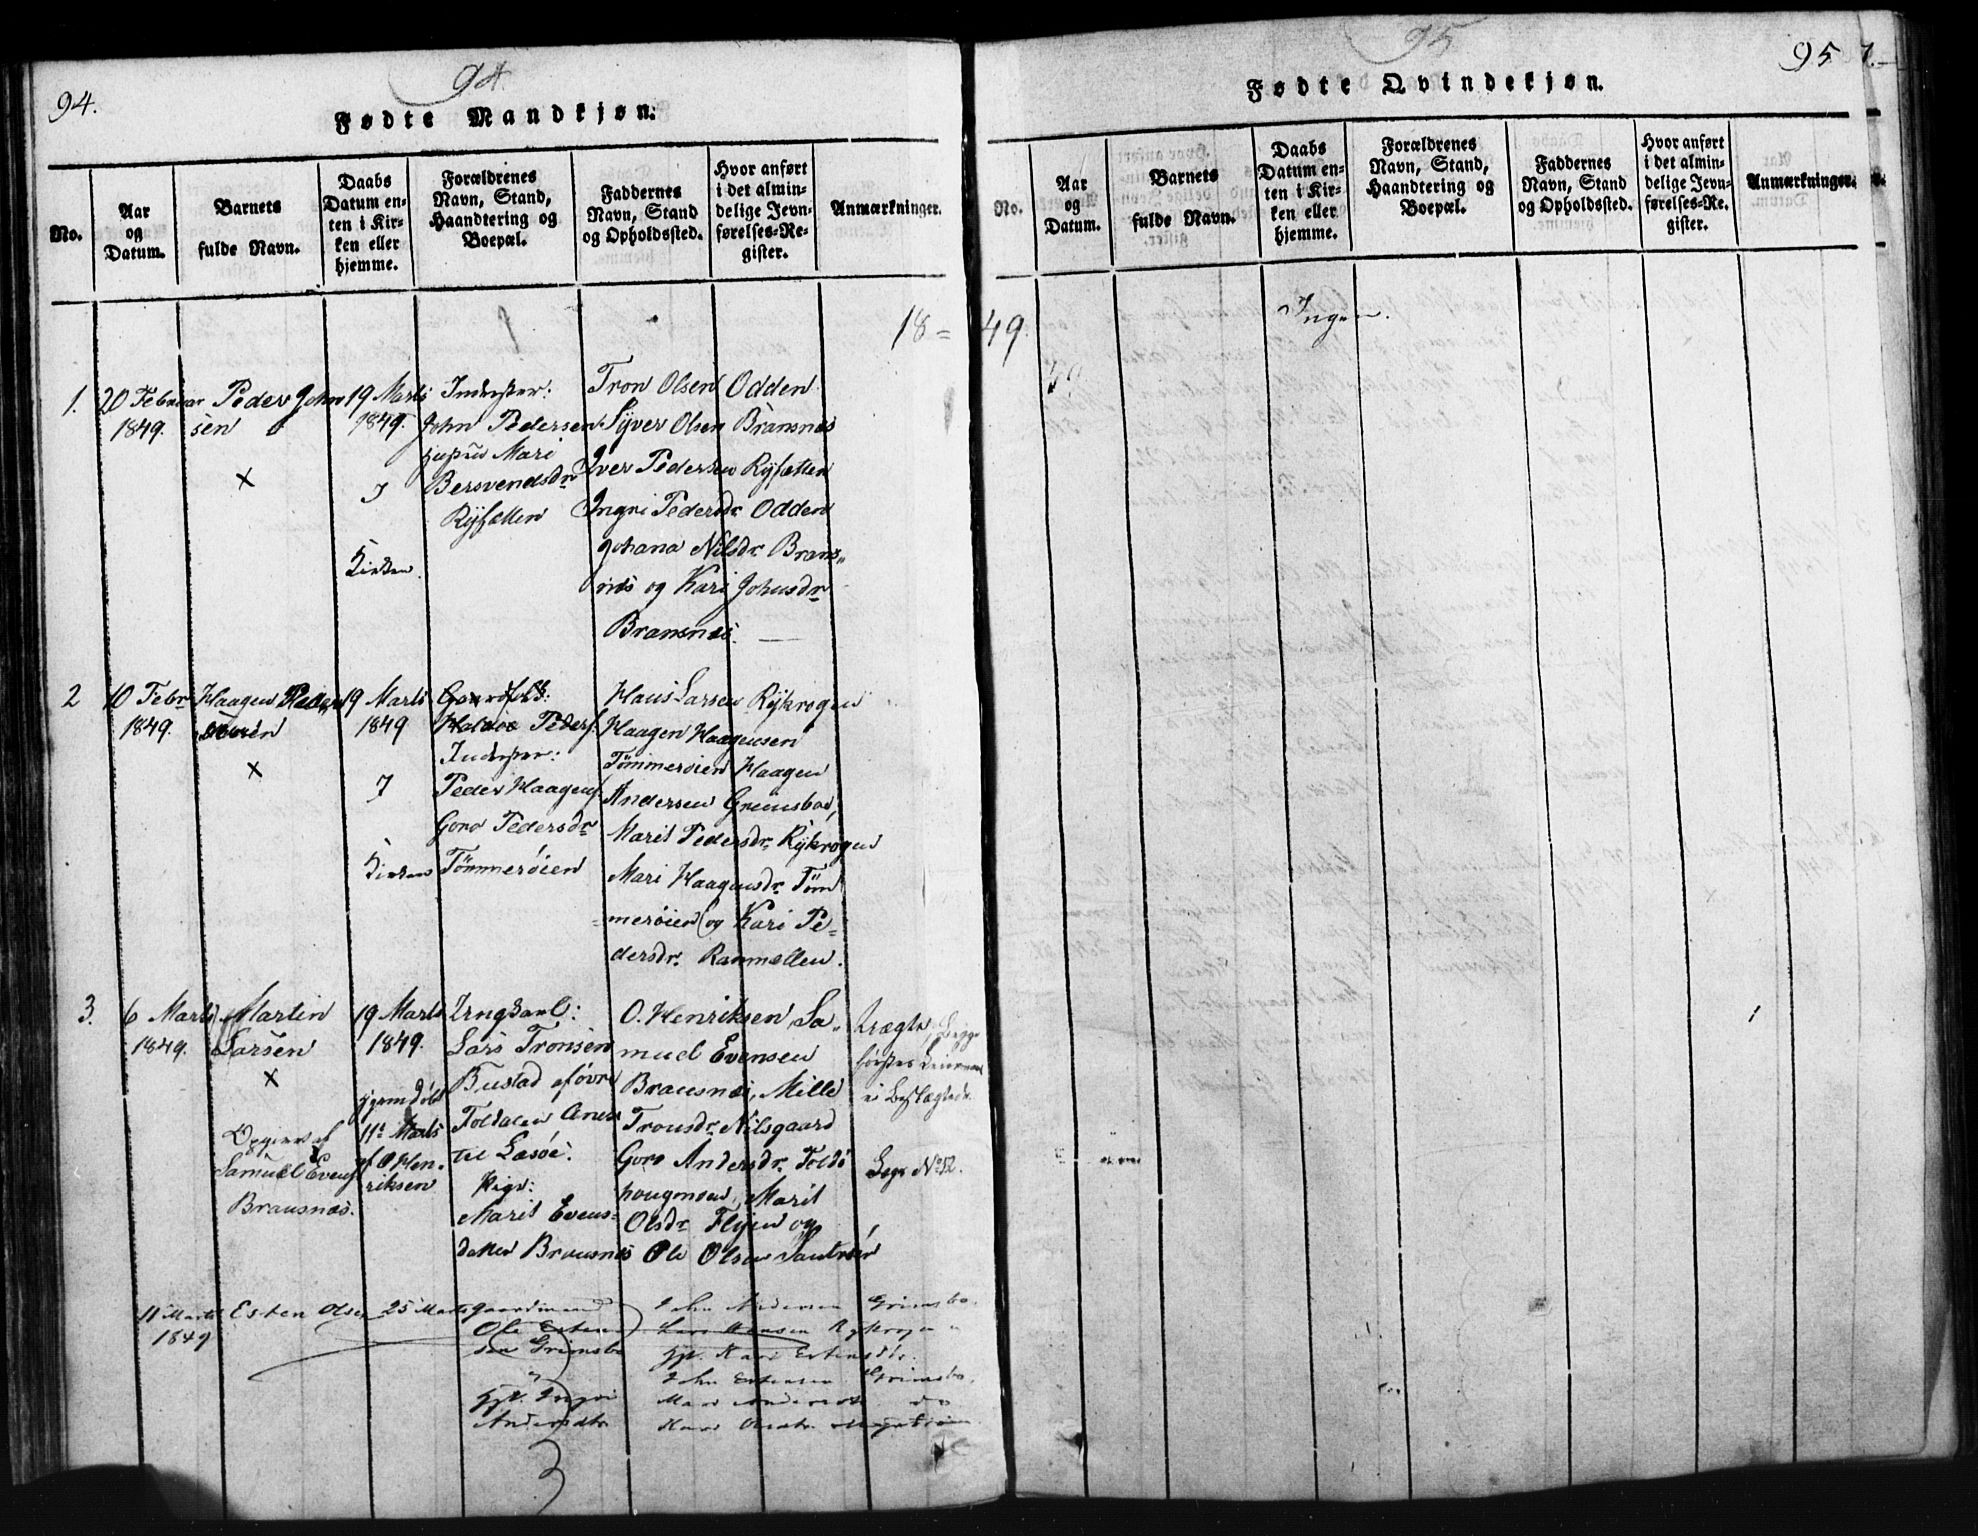 94.
94.
Fødte Mandkjøn.
No.
Aar
og
Datum.
Barnets
fulde Navn.
Daabs
Datum en-
ten i Kir-
ken eller
hjemme.
Forældrenes
Navn, Stand,
Haandtering og
Boepæl.
Faddernes
Navn, Stand
og Opholdssted.
Hvor anført
i det almin-
delige Jevn-
førelses-Re-
gister.
Anmærkninger.
18=
1.
20 Februar
1849.
Peder John
sen
×
19 Marts
1849.
Kirken.
Inderster:
John Pedersen
Mari
Bersvendsdr
Ryfætten
Tron Olsen Odden
Syver Olsen Bransnes
Iver Pedersen Ryfætten
Ingri Pedersdr Odden
Johana Nilsdr Brans„
nes og Kari Johnsdr
Bransnes.
2
10 Febr
1849.
Haagen Peder
×
19 Marts
1849
Kirken
Gaardfolk:
Peders.
Inderster:
Peder Haagens.
Goro Pedersdr
Tømmerøien
Hans Larsen Rykrogen
Haagen Haagensen
Tømmerøien Haagen
Andersen Grimsboe,
Marit Pedersdr Rykrogen
Mari Haagensdr Tøm
=merøien og Kari Pe=
dersdr. Rammellen.
3.
6 Marts
1849.
Martin
Larsen
×
Opgivet af
Samuel Evens.
Bransnæs.
19 Marts
1849.
hjemdøbt
11te Marts
af O Hen-
riksen
Ungkarl:
Lars Tronsen
Bustad af øvre
Foldalen
til Læsøe.
Pige:
Marit Evens-
datter Bransnes
O. Henriksen, Sa„
muel Evensen
Bransnes, Mille
Tronsdr Nilsgaard
Goro Andersdr.
Marit
Olsdr Flyen og
Ole Olsen
Begge
ei Beslægtede.
No 12.
11 Marts
1849
Esten Olsen
25 Marts
Gaardmand
Ole Esten
sen Grimsbo
og
Andersdtr
John Andersen Grimsbo.
Lars Hansen Rykrogen
Kari Estensdtr.
John Estensen Grimsbo.
Mari Andersdtr do
Kari
95
95
7.
Fødte Qvindekjøn.
No.
Aar
og
Datum.
Barnets
fulde Navn.
Daabs
Datum en-
ten i Kir-
ken eller
hjemme.
Forældrenes
Navn, Stand,
Haandtering og
Boepæl.
Faddernes
Navn, Stand
og Opholdssted.
Hvor anført
i det almin-
delige Jevn-
førelses-Re-
gister.
Anmærkninger.
49.
Ingen.